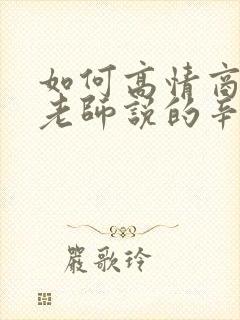 如何高情商
老師說的辛
嚴歌玲